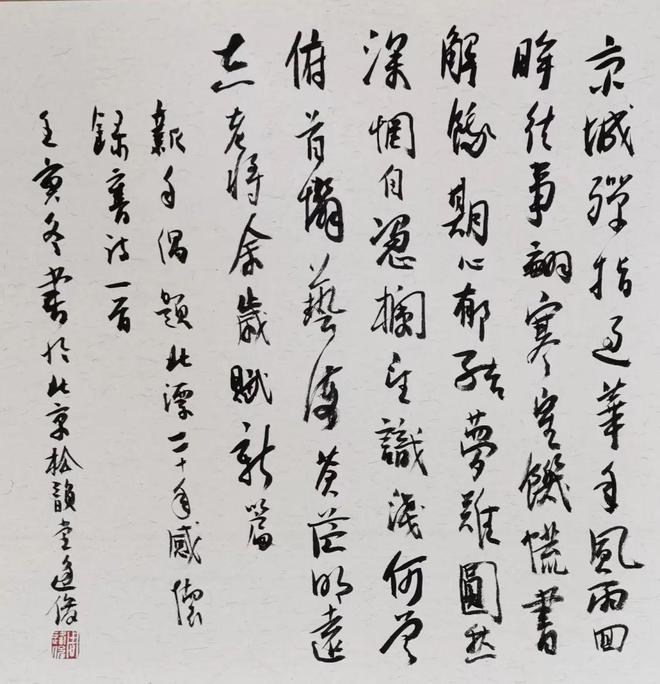 京城彈指過華年風雨回
眸往事翩寒室饑慌書
解餒期心郁結夢難圓愁
深惘自搁識淺何曾
俯首藝海蒼茫明遠
志老將余歲賦新篇
年偶題北漂二十年感懷
錄舊詩一首
壬寅冬書於北京松韻堂逢俊